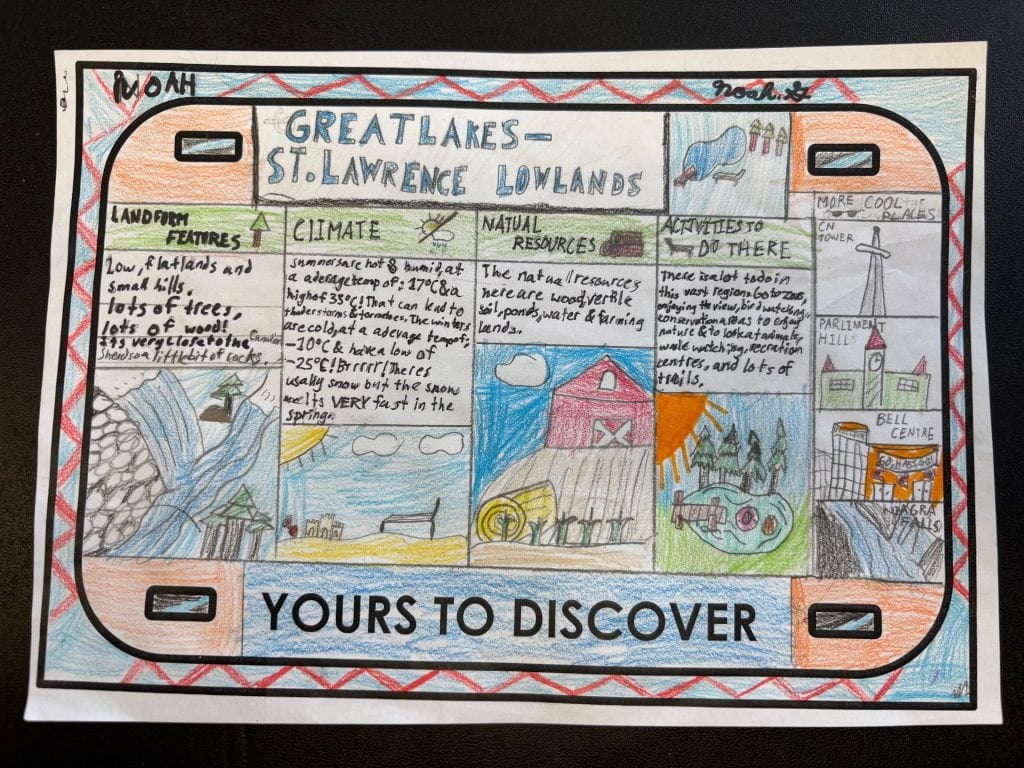 NOAH
Noah.G
GREAT LAKES-
ST. LAWRENCE LOWLANDS
LANDFORM
FEATURES
Low, flatlands and
small hills,
lots of trees,
lots of wood!
its very close to the
sheild so a little bit of rocks.
CLIMATE
summers are hot & humid, at
a aderage temp of: 17°C & a
high of 35°C! That can lead to
thunderstorms & tornadoes. The winters
are cold, at a adevage temp of:
-10°C & have a low of
-25°C! Brrrrr! Theres
usally snow but the snow
melts VERY fast in the
spring.
NATURAL
RESOURCES
The natual resources
here are wood, vertile
soil, ponds, water & farming
lands.
ACTIVITIES TO
DO THERE
There is a lot to do in
this vast region. Go to zoos,
enjoying the view, bird watching,
conservation areas to enjoy
nature & to look at animals,
wale watching, recreation
centres, and lots of
trails.
MORE COOL
PLACES
CN
TOWER
PARLIMENT
HILLS
BELL
CENTRE
NIAGRA
FALLS
YOURS TO DISCOVER